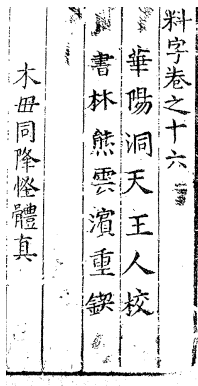 料字卷之十六
華陽洞天王人校
書林熊雲濱重鍥
木毋同降怪體真